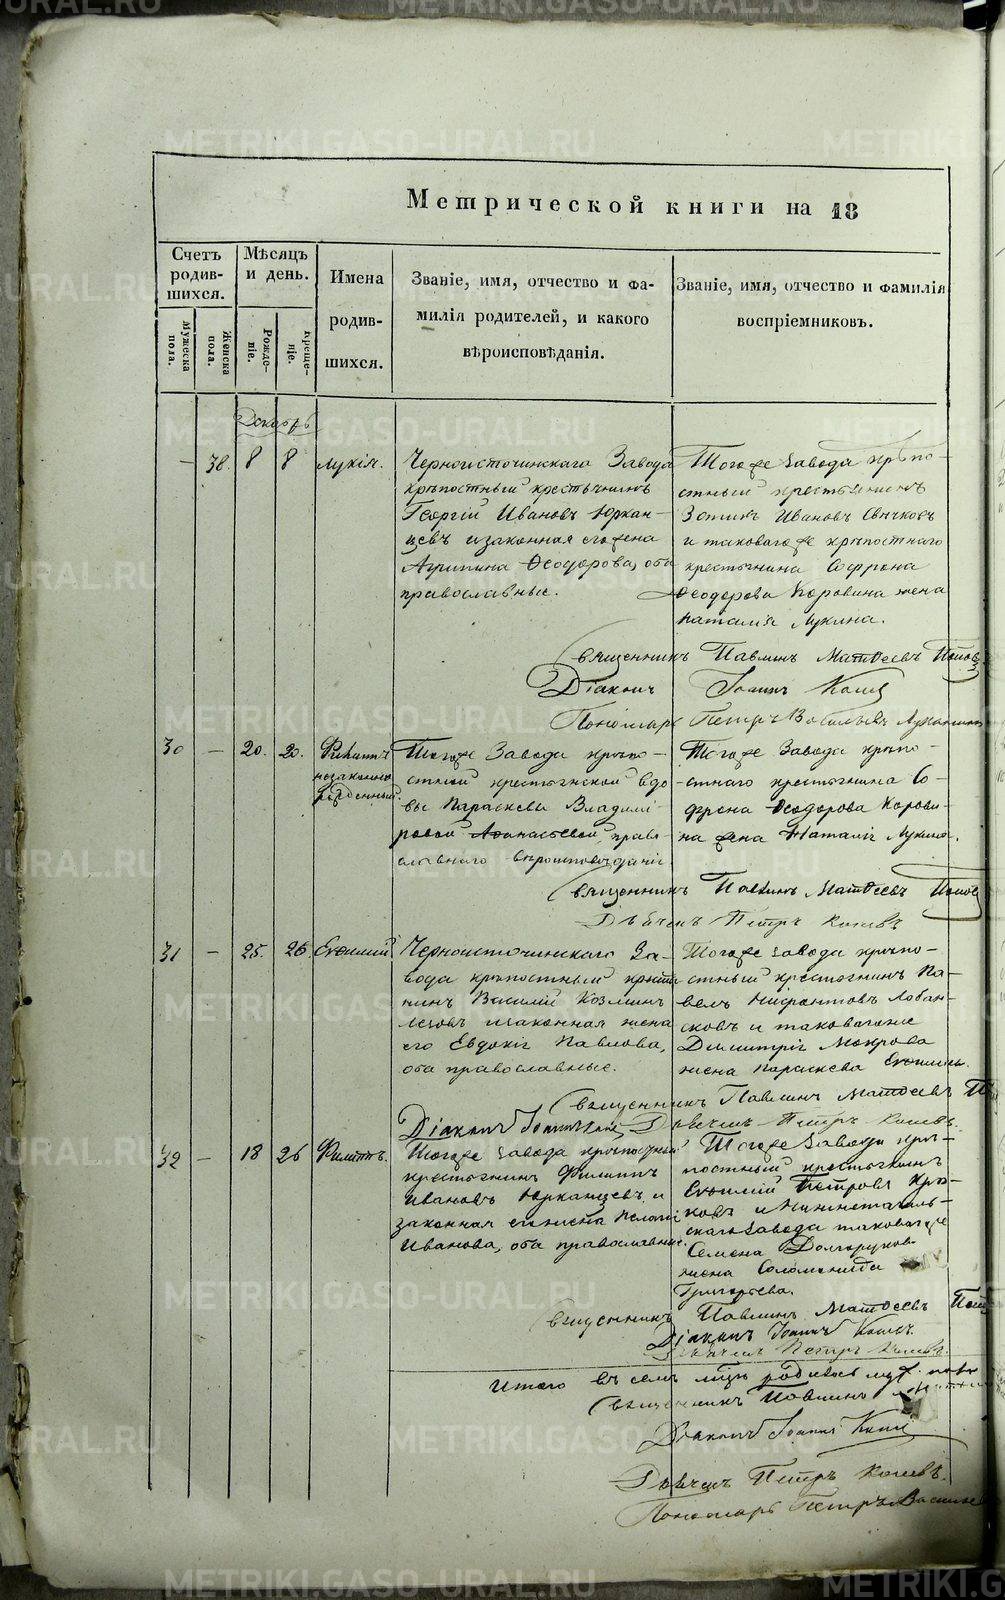 Метрической книги на 18
Счетъ родив-шихся.
Мѣсяцъ и день.
Имена родив-шихся.
Званіе, имя, отчество и фа-
милія родителей, и какого
вѣроисповѣданія.
Званіе, имя, отчество и фамилія
воспріемниковъ.
Мужеска пола.
Женска пола.
Рожде-ніе.
Креще-ніе.
Декабрь
— 38. 8 8 Лукія.
Черноисточинскаго Завода
крѣпостный крестьянинъ
Георгій Ивановъ Юркан-
цевъ и законная его жена
Агрипина Ѳеодорова, оба
православные.
Тогоже завода крѣпо-
стный крестьянинъ
Зотикъ Ивановъ
и таковагоже крѣпостнаго
крестьянина Софрона
Ѳеодорова Коровина жена
Наталія Лукина.
Священникъ Павлинъ Матѳеевъ Попов
Діаконъ Іоаннъ
Пономарь Петръ Васильевъ
30 — 20. 20.
незаконно
рожденный.
Тогоже Завода крѣпо-
стной крестьянской вдо-
вы Параскевы Владимі-
ровой Аѳанасьевой, право-
славнаго вѣроисповѣданія.
Тогоже Завода крѣпо-
стнаго крестьянина Со-
фрона Ѳеодорова Корови-
на жена Наталія Лукина.
Священникъ Павлинъ Матѳеевъ Попов
Дьячекъ Петръ
31 — 25. 26. Евѳимій
Черноисточинскаго За-
вода крѣпостный кресть
нинъ Василій Козминъ
и законная жена
его Евдокія Павлова,
оба православные.
Тогоже завода крѣпо-
стный крестьянинъ Па-
велъ Нифонтовъ Лобан-
сковъ и таковагоже
Димитрія Мокрова
жена Параскева
Священникъ Павлинъ Матѳеевъ П
Діаконъ Іоаннъ Дьячекъ Петръ
32 — 18 26 Филиппъ.
Тогоже завода крѣпостный
крестьянинъ Филиппъ
Ивановъ Юрканцевъ и
законная его жена Пелагія
Иванова, оба православные.
Тогоже Завода крѣ-
постный крестьянинъ
Евѳимій Петровъ Крю-
ковъ и Нижнетагиль-
скаго Завода таковагоже
Семена Долгорукова
жена Соломонида
Григорьева.
Священникъ Павлинъ Матѳеевъ Поп
Діаконъ Іоаннъ
Дьячекъ Петръ
Итого въ семъ родилось муж.
Священникъ Павлинъ
Діаконъ Іоаннъ
Дьячекъ Петръ
Пономарь Петръ Василье
METRIKI.GASO-URAL.RU